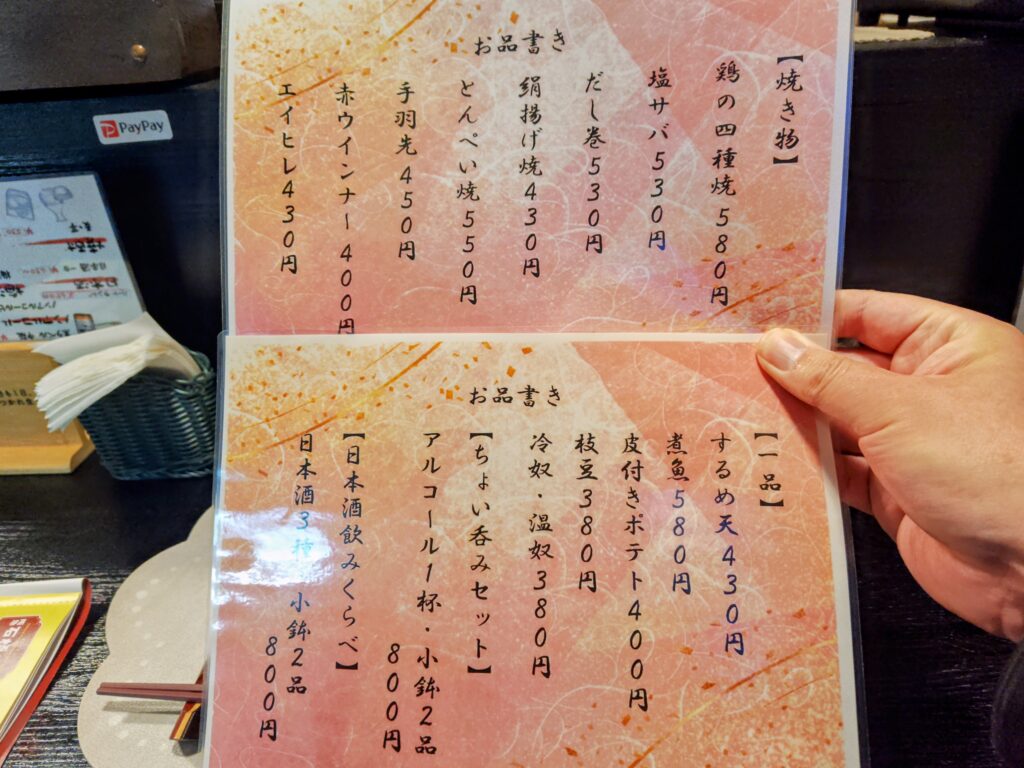 お品書き
【焼き物】
鶏の四種焼580円
塩サバ530円
だし巻530円
絹揚げ焼430円
とんぺい焼550円
手羽先450円
赤ウインナー400円
エイヒレ430円
お品書き
【一品】
するめ天430円
煮魚580円
皮付きポテト400円
枝豆380円
冷奴・温奴380円
【ちょい呑みセット】
アルコール1杯・小鉢2品
800円
【日本酒飲みくらべ】
日本酒3種 小鉢2品
800円
PayPay
日本酒